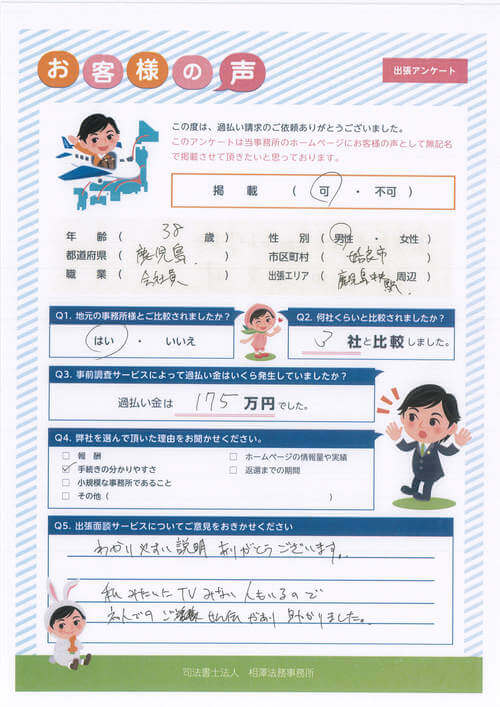 お客様の声
出張アンケート
この度は、過払い請求のご依頼ありがとうございました。
このアンケートは当事務所のホームページにお客様の声として無記名
で掲載させて頂きたいと思っております。
掲載 ( 可 ・ 不可 )
年齢 ( 38 歳 ) 性別 ( 男性 ・ 女性 )
都道府県 ( 鹿児島 ) 市区町村 ( 姶良市 )
職業 ( 会社員 ) 出張エリア ( 鹿児島中央駅 周辺 )
Q1. 地元の事務所様とご比較されましたか?
はい ・ いいえ
Q2. 何社くらいと比較されましたか?
3 社と比較しました。
Q3. 事前調査サービスによって過払い金はいくら発生していましたか?
過払い金は 175 万円でした。
Q4. 弊社を選んで頂いた理由をお聞かせください。
□ 報酬
☑ 手続きの分かりやすさ
□ 小規模な事務所であること
□ その他 ( )
□ ホームページの情報量や実績
□ 返還までの期間
Q5. 出張面談サービスについてご意見をおきかせください
わかりやすい説明ありがとうございます。
私みたいにTVみない人もいるので
司法書士法人 相澤法務事務所